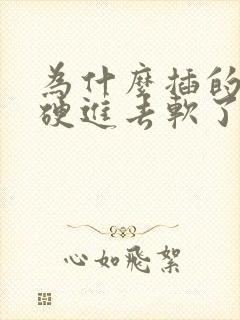 為什麼插的
硬進去軟了
心如飛絮